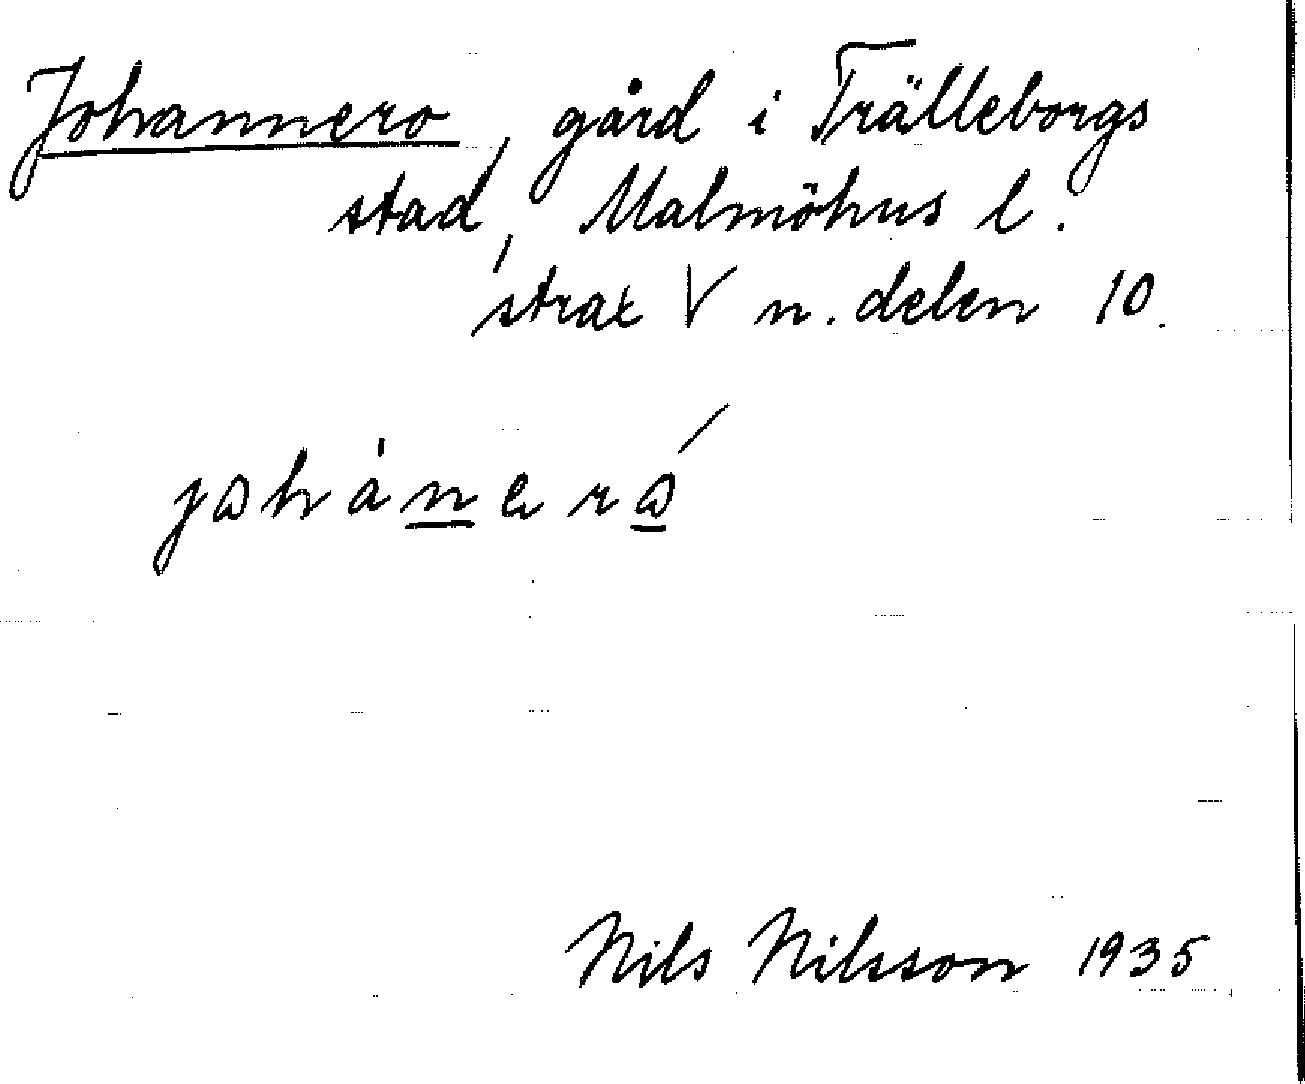 Johannero, gård i Trälleborgs
stad, Malmöhus l.
strax V n. delen 10.
joháneró
Nils Nilsson 1935